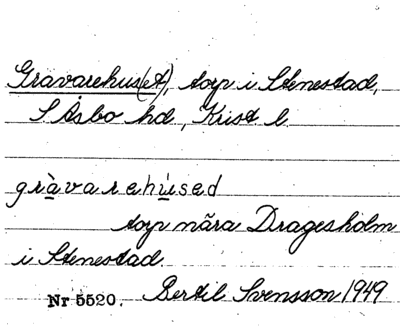 Grävarehus(et), torp i Stenestad,
S Åsbo hd, Krist l.
gràvarehúsed
torp nära Dragesholm
i Stenestad.
Nr 5520. Bertil Svensson 1949